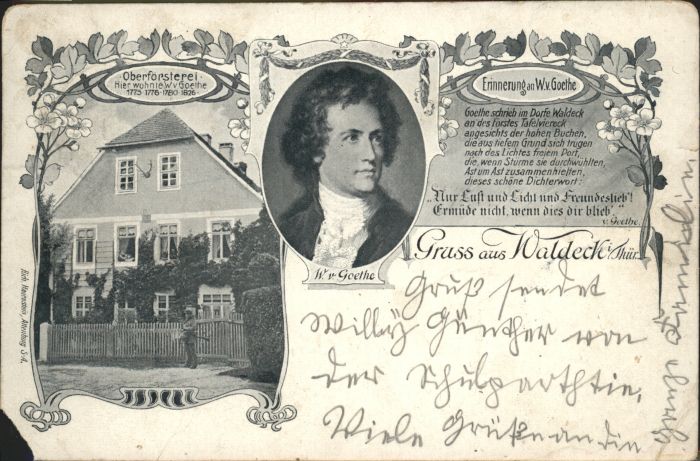 Oberförsterei
Hier wohnte W. v. Goethe
1775 · 1776 · 1780 · 1826 ·
Erinnerung an W. v. Goethe
Goethe schrieb im Dorfe Waldeck
an des Forstes Tafelviereck
angesichts der hohen Buchen,
die aus tiefem Grund sich trugen
nach des Lichtes freiem Port,
die, wenn Stürme sie durchwühlten,
Ast um Ast zusammenhielten,
dieses schöne Dichterwort:
„Nur Luft und Licht und Freundeslieb'!
Ermüde nicht, wenn dies dir blieb."
v. Goethe.
W. v. Goethe
Gruss aus Waldeck i. Thür.
Gruß sendet
Willy Günther von
der Schulparthtie.
Viele Grüße an die
ganze Familie
Altenburg S.-A.